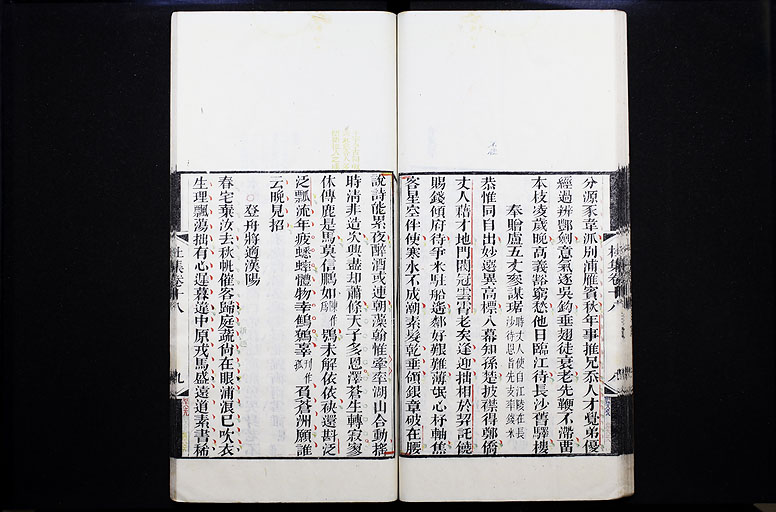 分源豕韋派別浦雁賓秋年事推兄忝人才覺弟優
經過辨酆劍意氣逐吳鈎垂翅徒衰老先鞭不滯留
本枝凌歲晚高義豁窮愁他日臨江待長沙舊驛樓
奉贈盧五丈參謀琚
時丈人使自江陵在長
沙待恩旨先支率錢米
恭惟同自出妙選異高標入幕知孫楚披襟得鄭僑
丈人藉才地門閥冠雲霄老矣逢迎拙相於契託饒
賜錢傾府待爭米駐船遙鄰好艱難薄氓心杼軸焦
客星空伴使寒水不成潮素髮乾垂領銀章破在腰
說詩能累夜醉酒或連朝藻翰惟牽率湖山合動搖
時清非造次興盡却蕭條天子多恩澤蒼生轉寂寥
休傳鹿是馬莫信鵩如
鴞未解依依袂還斟泛
泛瓢流年疲蟋蟀體物幸鷦鷯辜
負蒼洲願誰
云晚見招
登舟將適漢陽
春宅棄汝去秋帆催客歸庭蔬尚在眼浦浪已吹衣
生理飄蕩拙有心遲暮違中原戎馬盛遠道素書稀
杜集卷十八
九